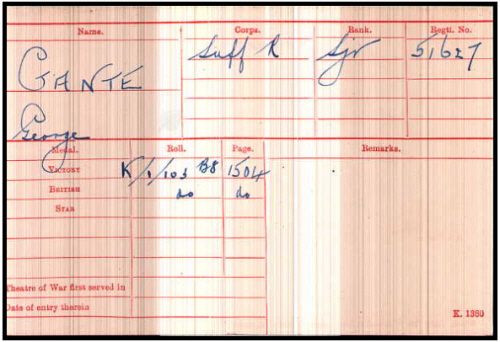 Name. Corps. Rank. Regtl. No.
GANTE Suff R Sjt 51627
George
Medal. Roll. Page. Remarks.
VICTORY K/1/103 B8 1504
BRITISH do do
STAR
Theatre of War first served in
Date of entry therein K. 1380